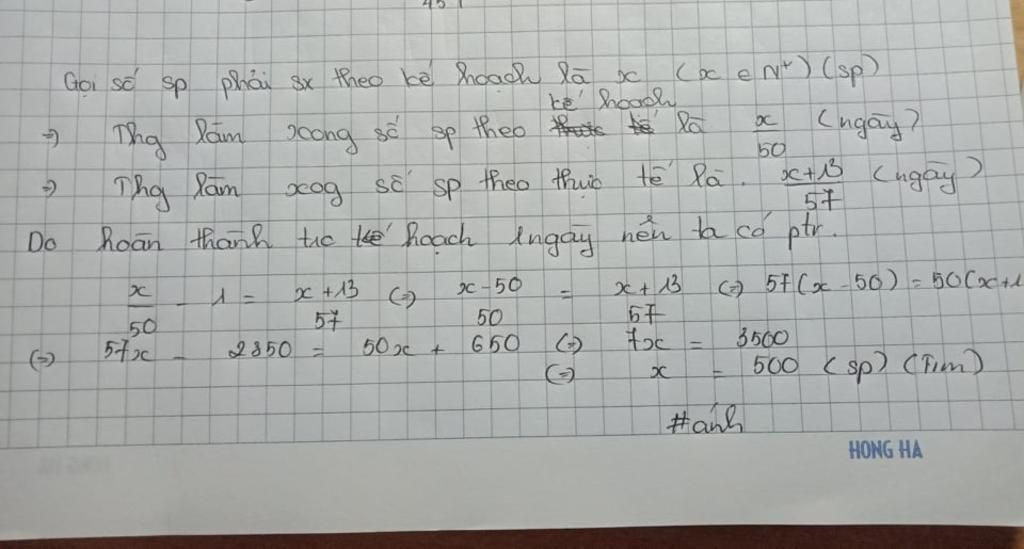 Gọi số sp phải sx theo kế hoạch là x (x e N*) (sp)
kế hoạch
=> Thg làm xong số sp theo thực tế là x/50 (ngày)
=> Thg làm xog số sp theo thực tế là. x+13/57 (ngày)
Do hoàn thành tưc kế hoạch 1ngày nên ta có ptr.
x/50 - 1 = x+13/57 (=) x-50/50 = x+13/57 (=) 57(x-50) = 50(x+1
(=) 57x - 2850 = 50x + 650 (=) 7x = 3500
(=) x = 500 (sp) (Tım)
#ánh
HONG HA